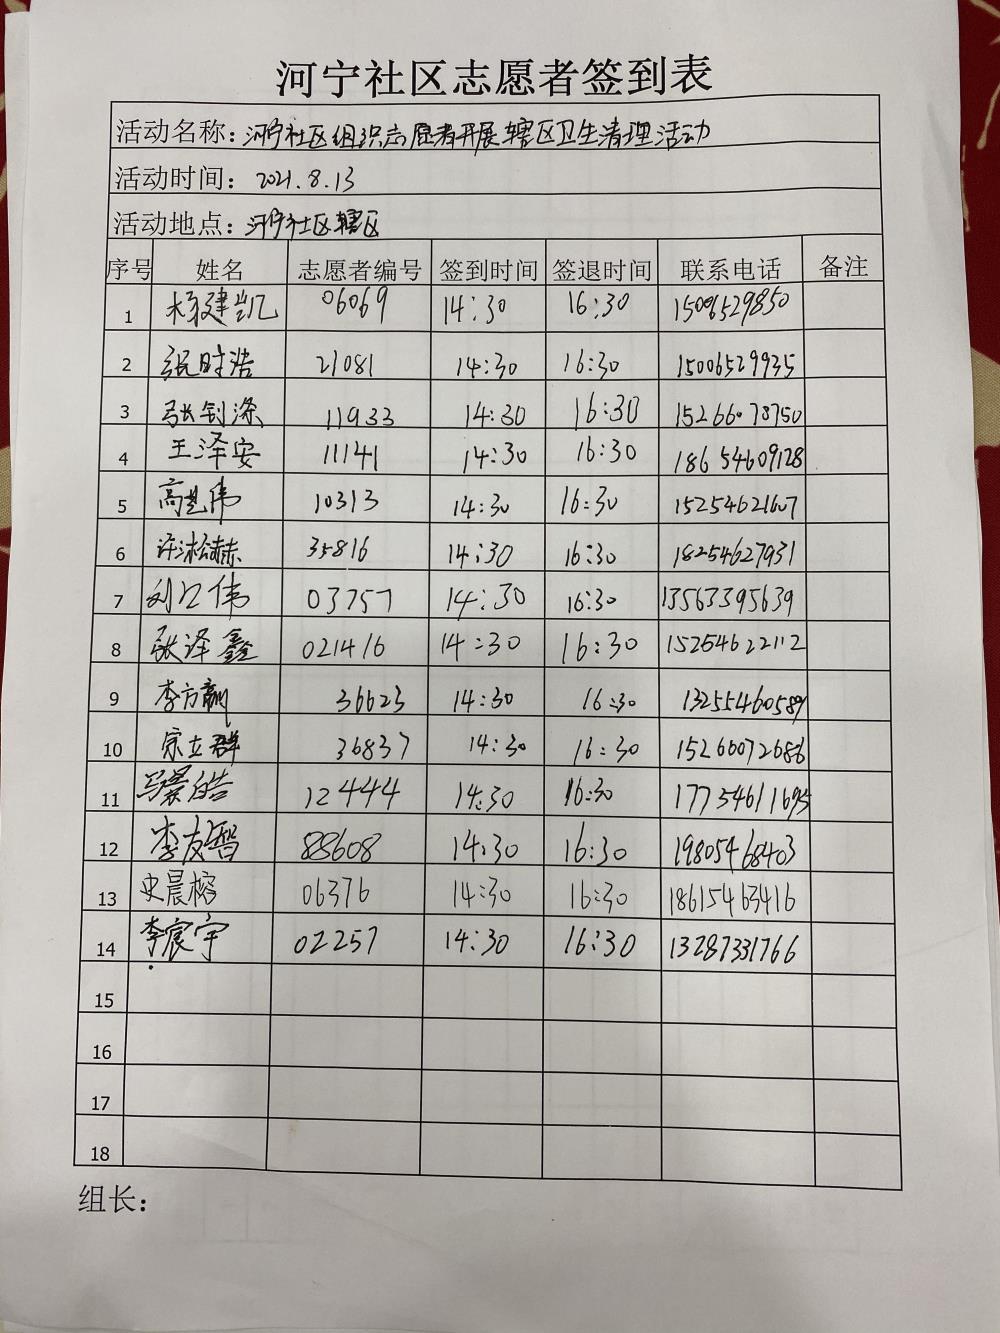 河宁社区志愿者签到表
活动名称：河宁社区组织志愿者开展辖区卫生清理活动
活动时间：2021.8.13
活动地点：河宁社区辖区
序号 姓名 志愿者编号 签到时间 签退时间 联系电话 备注
1 杨建凯 06069 14:30 16:30 15006529850
2 时浩 21081 14:30 16:30 15006529935
3 张钊涤 11933 14:30 16:30 15266078750
4 王泽安 11141 14:30 16:30 18654609128
5 高艺伟 10313 14:30 16:30 15254621607
6 许淞赫 35816 14:30 16:30 18254627931
7 刘伟 03757 14:30 16:30 13563395639
8 张泽鑫 021416 14:30 16:30 15254622112
9 李方 36623 14:30 16:30 13255460589
10 宗立群 36837 14:30 16:30 15266072686
11 马景皓 12444 14:30 16:30 17754611695
12 李友智 88608 14:30 16:30 19805468403
13 史晨榕 06376 14:30 16:30 18615463416
14 李宸宇 02257 14:30 16:30 13287331766
15
16
17
18
组长：